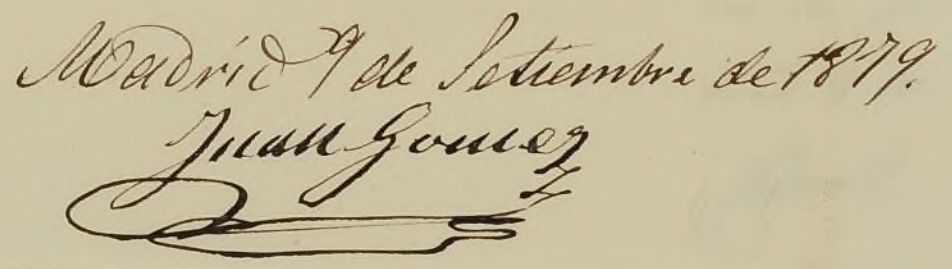 Madrid 9 de Setiembre de 1879.
Juan Gomez